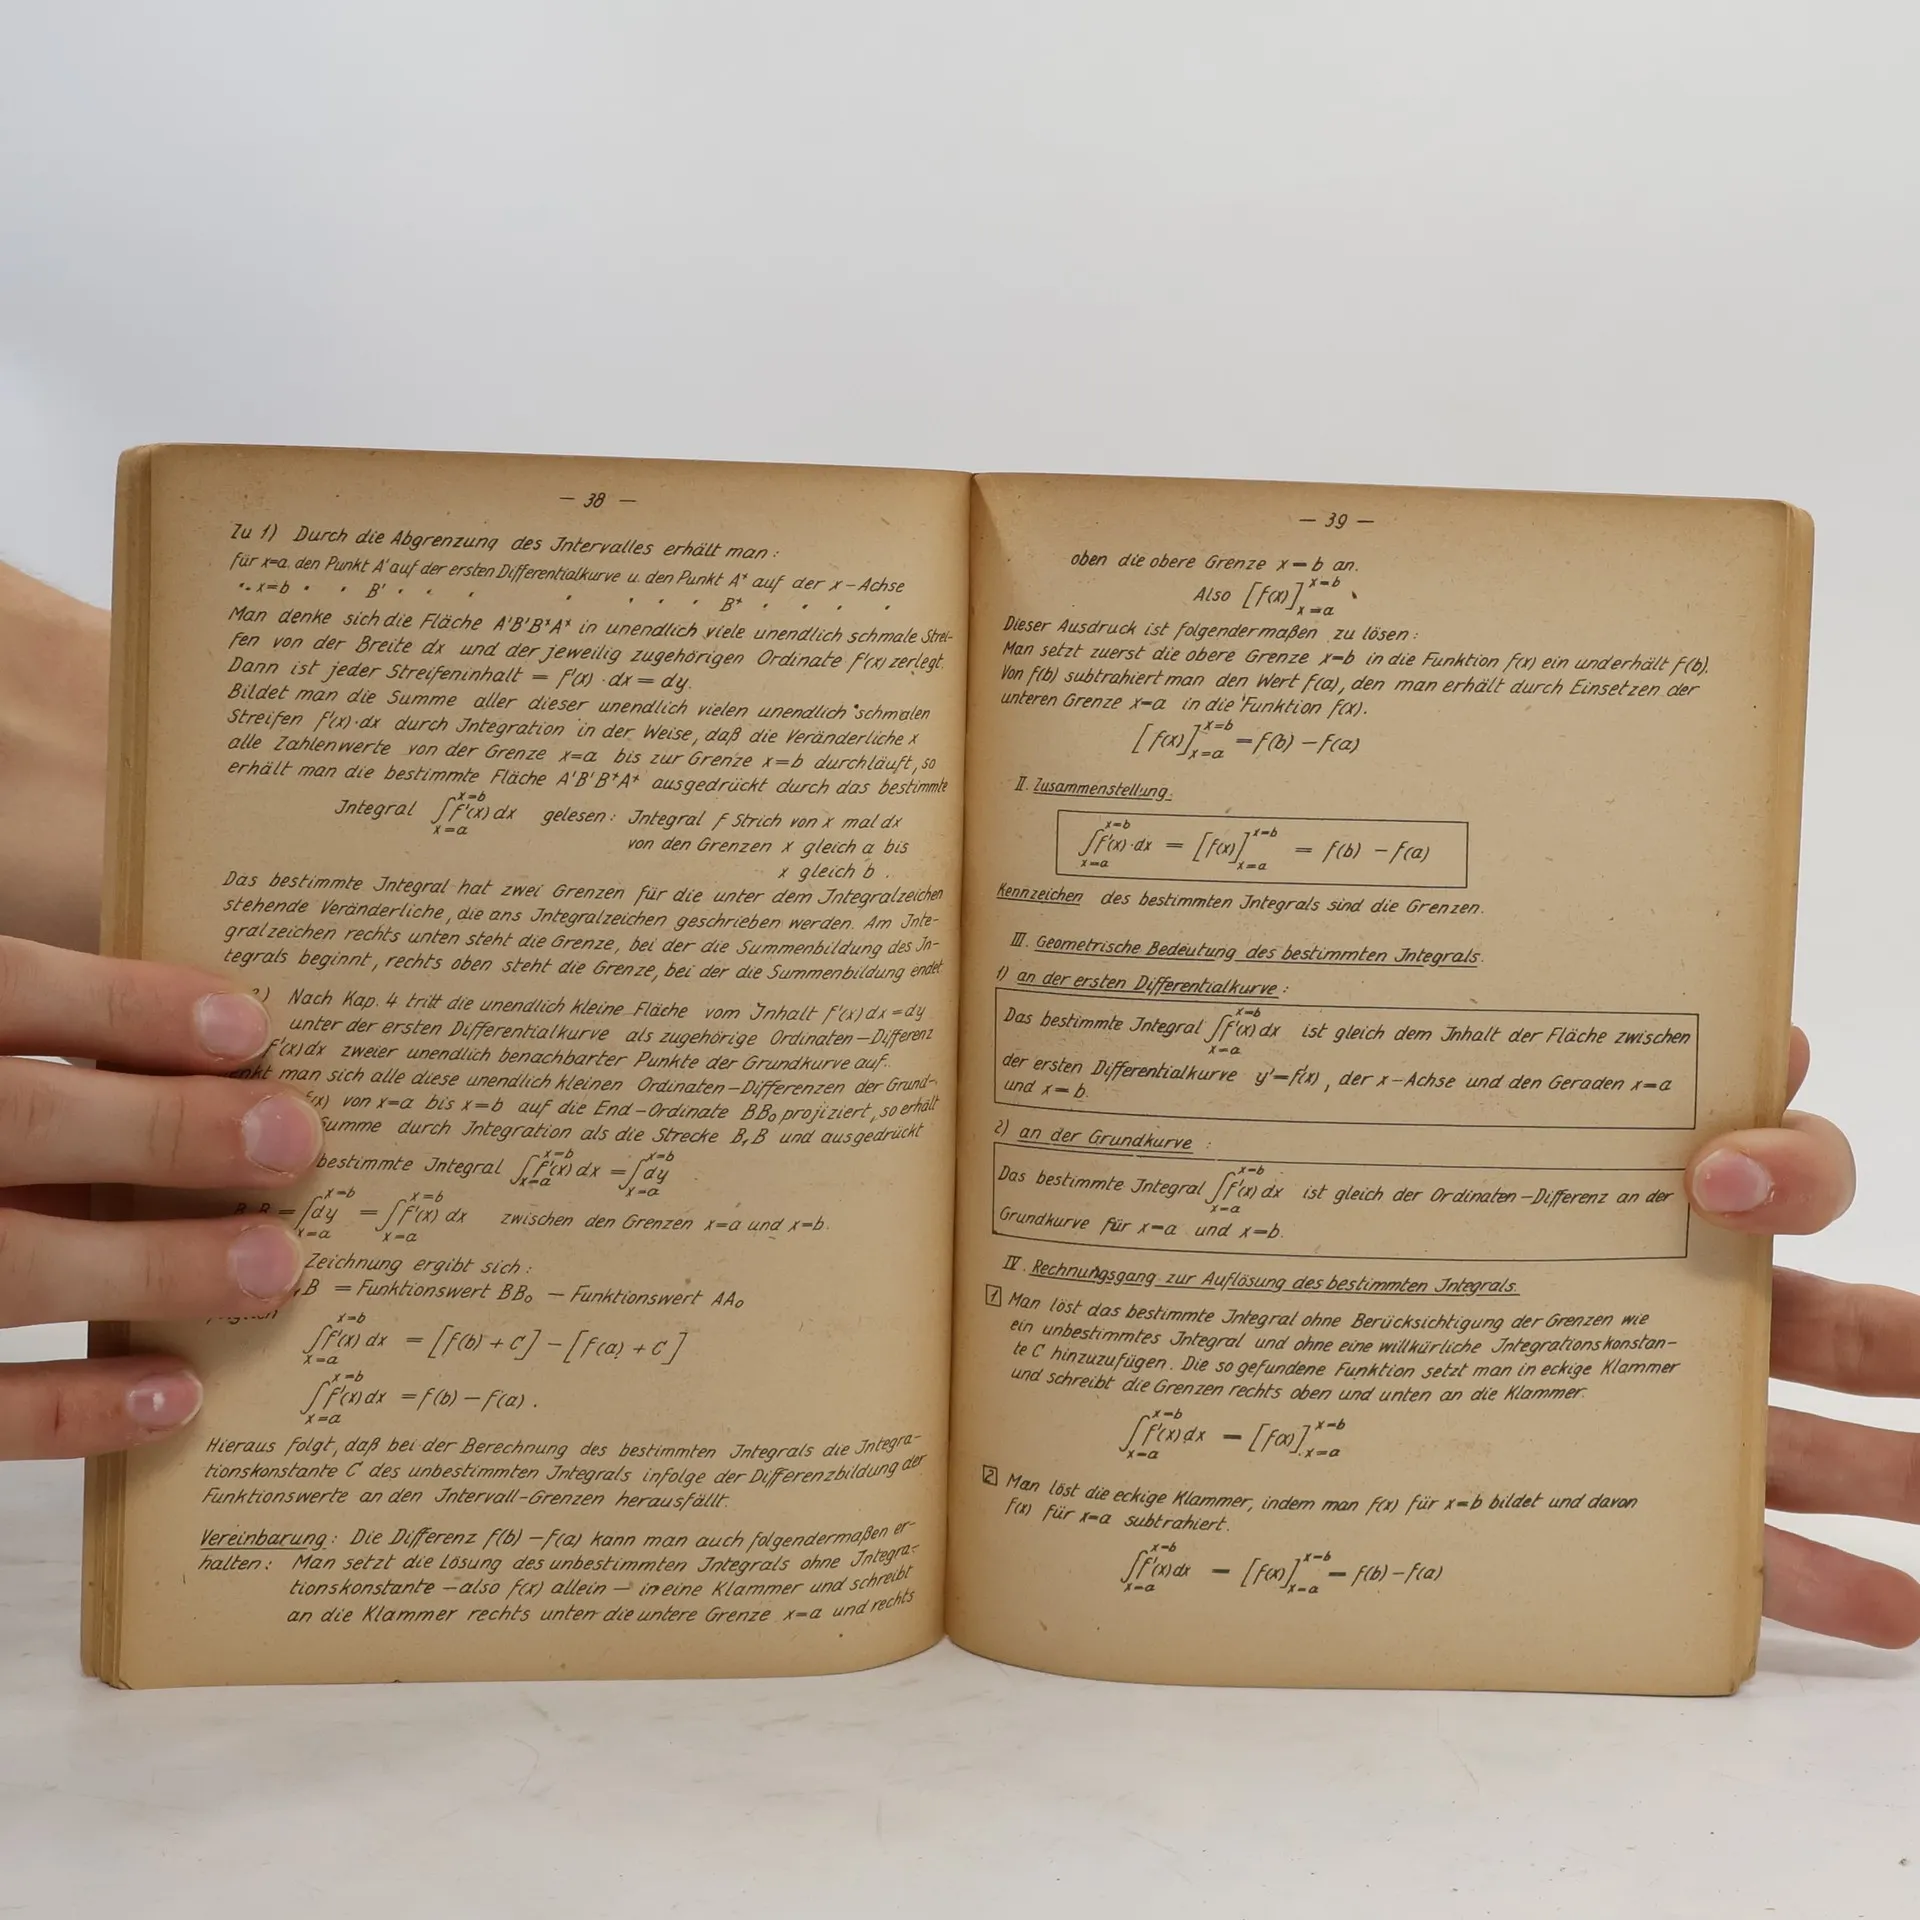 — 38 —
Zu 1) Durch die Abgrenzung des Intervalles erhält man:
für x=a den Punkt A' auf der ersten Differentialkurve u. den Punkt A* auf der x-Achse
" x=b " " B' " " " " " " " B* " " " "
Man denke sich die Fläche A'B'B*A* in unendlich viele unendlich schmale Strei-
fen von der Breite dx und der jeweilig zugehörigen Ordinate f'(x) zerlegt.
Dann ist jeder Streifeninhalt = f'(x)·dx = dy.
Bildet man die Summe aller dieser unendlich vielen unendlich schmalen
Streifen f'(x)·dx durch Integration in der Weise, daß die Veränderliche x
alle Zahlenwerte von der Grenze x=a bis zur Grenze x=b durchläuft, so
erhält man die bestimmte Fläche A'B'B*A* ausgedrückt durch das bestimmte
Integral ∫_{x=a}^{x=b} f'(x) dx gelesen: Integral f Strich von x mal dx
von den Grenzen x gleich a bis
x gleich b.
Das bestimmte Integral hat zwei Grenzen für die unter dem Integralzeichen
stehende Veränderliche, die ans Integralzeichen geschrieben werden. Am Inte-
gralzeichen rechts unten steht die Grenze, bei der die Summenbildung des In-
tegrals beginnt, rechts oben steht die Grenze, bei der die Summenbildung endet.
2) Nach Kap. 4 tritt die unendlich kleine Fläche vom Inhalt f'(x) dx = dy
unter der ersten Differentialkurve als zugehörige Ordinaten-Differenz
f'(x) dx zweier unendlich benachbarter Punkte der Grundkurve auf.
man sich alle diese unendlich kleinen Ordinaten-Differenzen der Grund-
f(x) von x=a bis x=b auf die End-Ordinate BB₀ projiziert, so erhält
Summe durch Integration als die Strecke B₁B und ausgedrückt
bestimmte Integral ∫_{x=a}^{x=b} f'(x) dx = ∫_{x=a}^{x=b} dy
= ∫_{x=a}^{x=b} dy = ∫_{x=a}^{x=b} f'(x) dx zwischen den Grenzen x=a und x=b.
Zeichnung ergibt sich:
B = Funktionswert BB₀ — Funktionswert AA₀
∫_{x=a}^{x=b} f'(x) dx = [f(b) + C] — [f(a) + C]
∫_{x=a}^{x=b} f'(x) dx = f(b) — f(a).
Hieraus folgt, daß bei der Berechnung des bestimmten Integrals die Integra-
tionskonstante C des unbestimmten Integrals infolge der Differenzbildung der
Funktionswerte an den Intervall-Grenzen herausfällt.
Vereinbarung: Die Differenz f(b) — f(a) kann man auch folgendermaßen er-
halten: Man setzt die Lösung des unbestimmten Integrals ohne Integra-
tionskonstante — also f(x) allein — in eine Klammer und schreibt
an die Klammer rechts unten die untere Grenze x=a und rechts
— 39 —
oben die obere Grenze x=b an.
Also [f(x)]_{x=a}^{x=b}
Dieser Ausdruck ist folgendermaßen zu lösen:
Man setzt zuerst die obere Grenze x=b in die Funktion f(x) ein und erhält f(b).
Von f(b) subtrahiert man den Wert f(a), den man erhält durch Einsetzen der
unteren Grenze x=a in die Funktion f(x).
[f(x)]_{x=a}^{x=b} = f(b) — f(a)
II. Zusammenstellung.
∫_{x=a}^{x=b} f'(x)·dx = [f(x)]_{x=a}^{x=b} = f(b) — f(a)
Kennzeichen des bestimmten Integrals sind die Grenzen.
III. Geometrische Bedeutung des bestimmten Integrals.
1) an der ersten Differentialkurve:
Das bestimmte Integral ∫_{x=a}^{x=b} f'(x) dx ist gleich dem Inhalt der Fläche zwischen
der ersten Differentialkurve y'=f'(x), der x-Achse und den Geraden x=a
und x=b.
2) an der Grundkurve:
Das bestimmte Integral ∫_{x=a}^{x=b} f'(x) dx ist gleich der Ordinaten-Differenz an der
Grundkurve für x=a und x=b.
IV. Rechnungsgang zur Auflösung des bestimmten Integrals.
1 Man löst das bestimmte Integral ohne Berücksichtigung der Grenzen wie
ein unbestimmtes Integral und ohne eine willkürliche Integrationskonstan-
te C hinzuzufügen. Die so gefundene Funktion setzt man in eckige Klammer
und schreibt die Grenzen rechts oben und unten an die Klammer.
∫_{x=a}^{x=b} f'(x) dx = [f(x)]_{x=a}^{x=b}
2 Man löst die eckige Klammer, indem man f(x) für x=b bildet und davon
f(x) für x=a subtrahiert.
∫_{x=a}^{x=b} f'(x) dx = [f(x)]_{x=a}^{x=b} = f(b) — f(a)